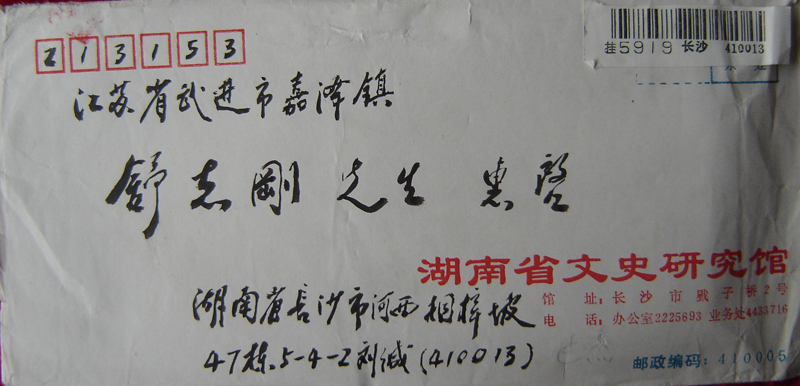 213153
挂5919 长沙 410013
江苏省武进市嘉泽镇
舒志剛 先生 惠啓
湖南省文史研究馆
馆 址:长沙市戥子桥2号
电 话:办公室2225693 业务处4433716
湖南省長沙市河西
47栋.5-4-2刘缄(410013)
邮政编码:410005